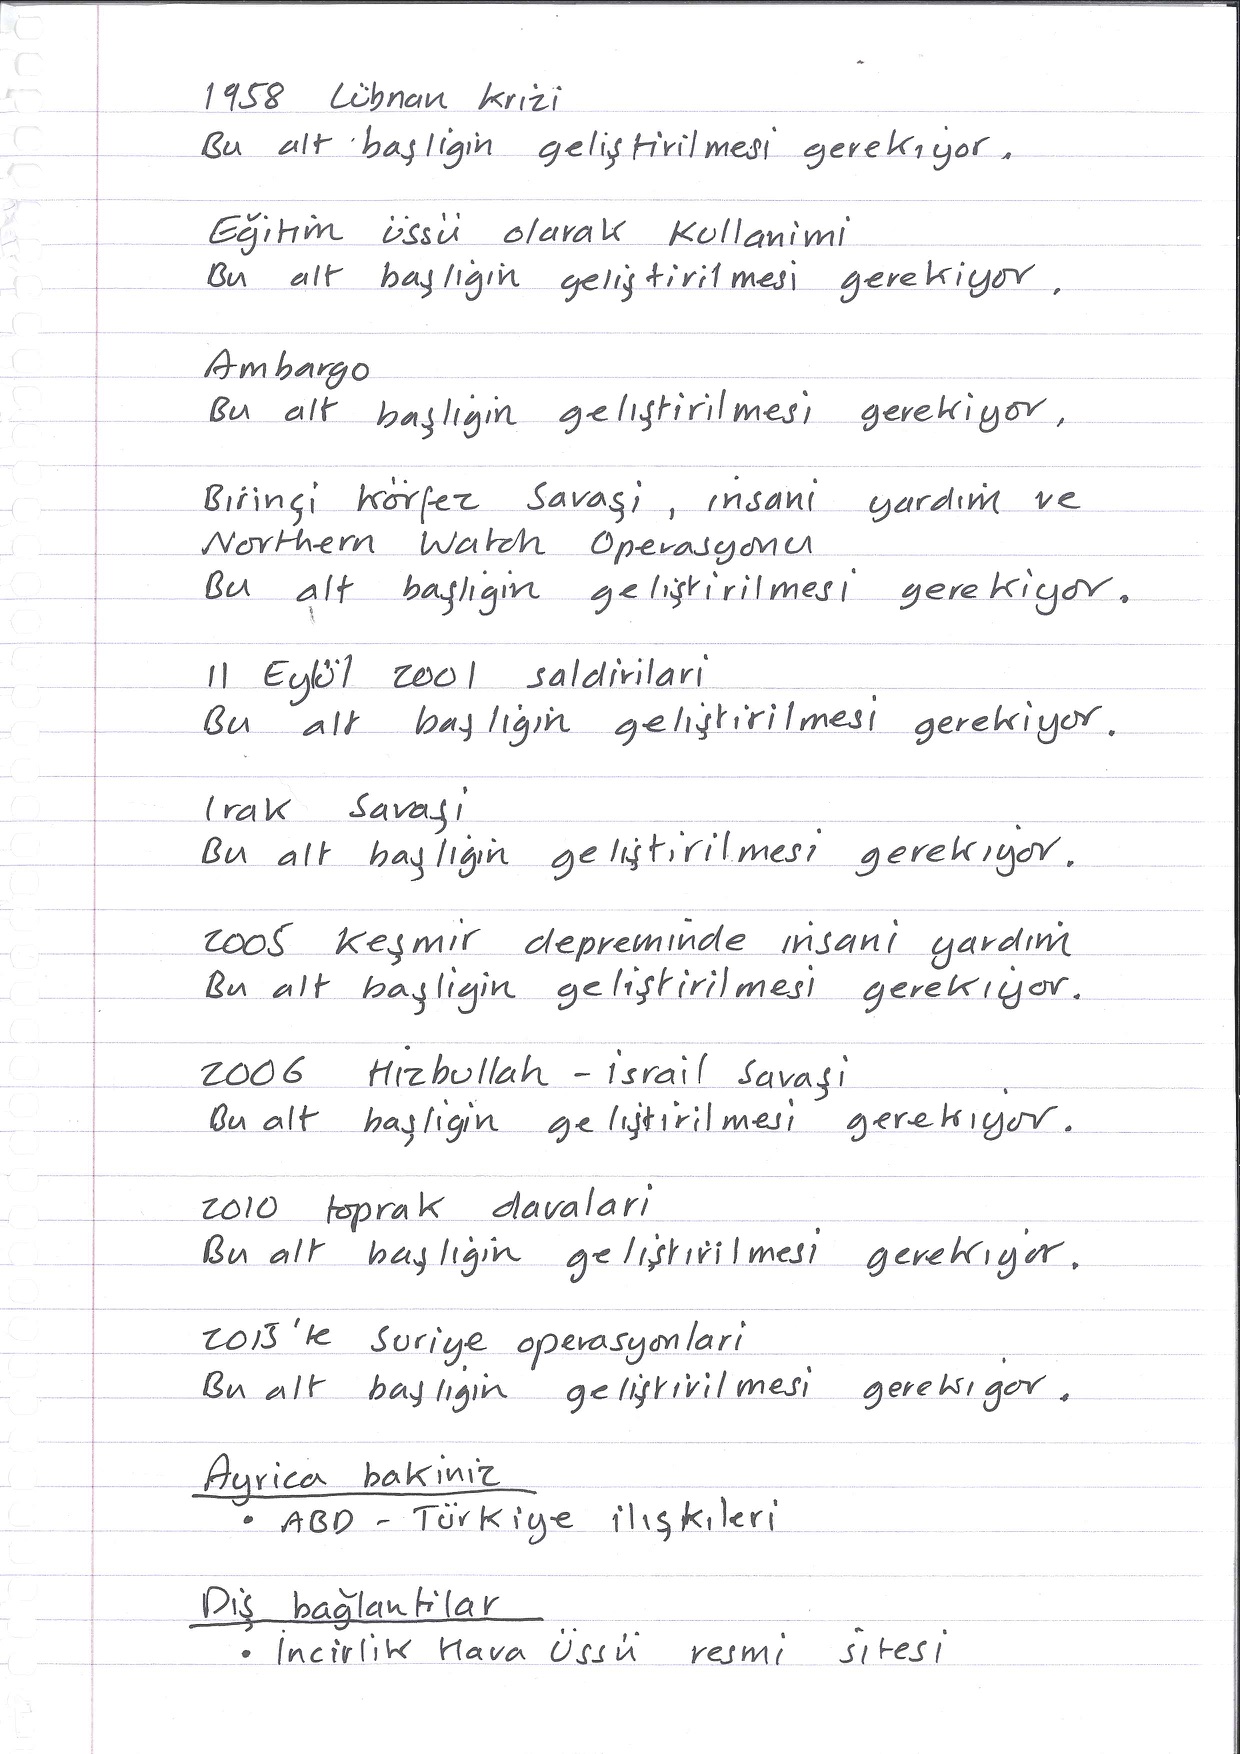 1958 Lübnan krizi
Bu alt başligin geliştirilmesi gerekiyor.
Eğitim üssü olarak kullanimi
Bu alt başligin geliştirilmesi gerekiyor.
Ambargo
Bu alt başligin geliştirilmesi gerekiyor.
Birinçi Körfez Savaşi, insani yardim ve
Northern Watch Operasyonu
Bu alt başligin geliştirilmesi gerekiyor.
11 Eylül 2001 saldirilari
Bu alt başligin geliştirilmesi gerekiyor.
Irak Savaşi
Bu alt başligin geliştirilmesi gerekiyor.
2005 Keşmir depreminde insani yardim
Bu alt başligin geliştirilmesi gerekiyor.
2006 Hizbullah - İsrail Savaşi
Bu alt başligin geliştirilmesi gerekiyor.
2010 toprak davalari
Bu alt başligin geliştirilmesi gerekiyor.
2013'te Suriye operasyonlari
Bu alt başligin geliştirilmesi gerekiyor.
Ayrica bakiniz
• ABD - Türkiye ilişkileri
Diş bağlantilar
• İncirlik Hava Üssü resmi sitesi